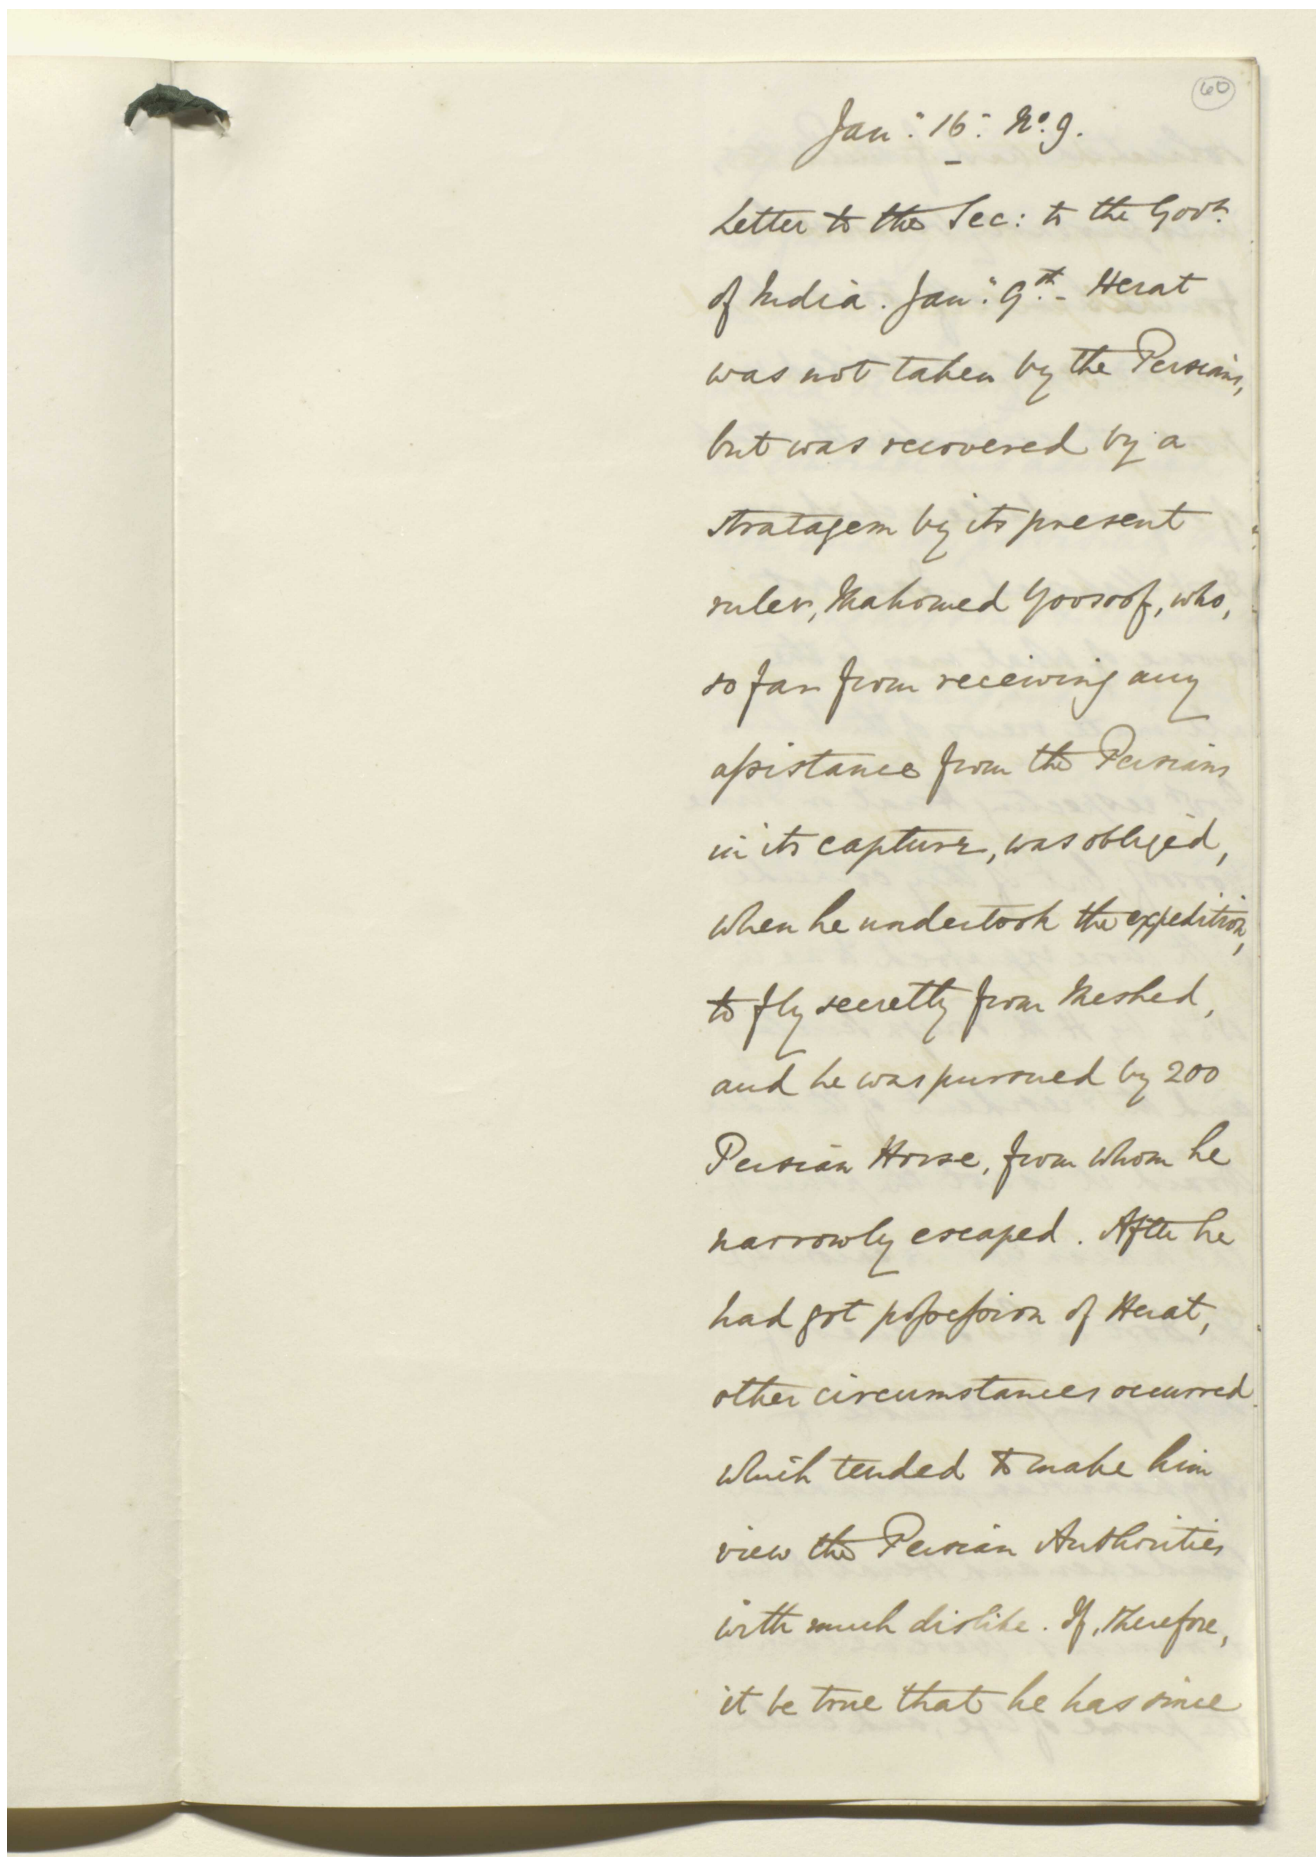 60
Jan: 16: No. 9.
Letter to the Sec: to the Govt.
of India. Jan: 9th. - Herat
was not taken by the Persians,
but was recovered by a
stratagem by its present
ruler, Mahomed Yoosoof, who,
so far from receiving any
assistance from the Persians
in its capture, was obliged,
when he undertook the expedition,
to fly secretly from Meshed,
and he was pursued by 200
Persian Horse, from whom he
narrowly escaped. After he
had got possession of Herat,
other circumstances occurred
which tended to make him
view the Persian Authorities
with much dislike. If, therefore,
it be true that he has since